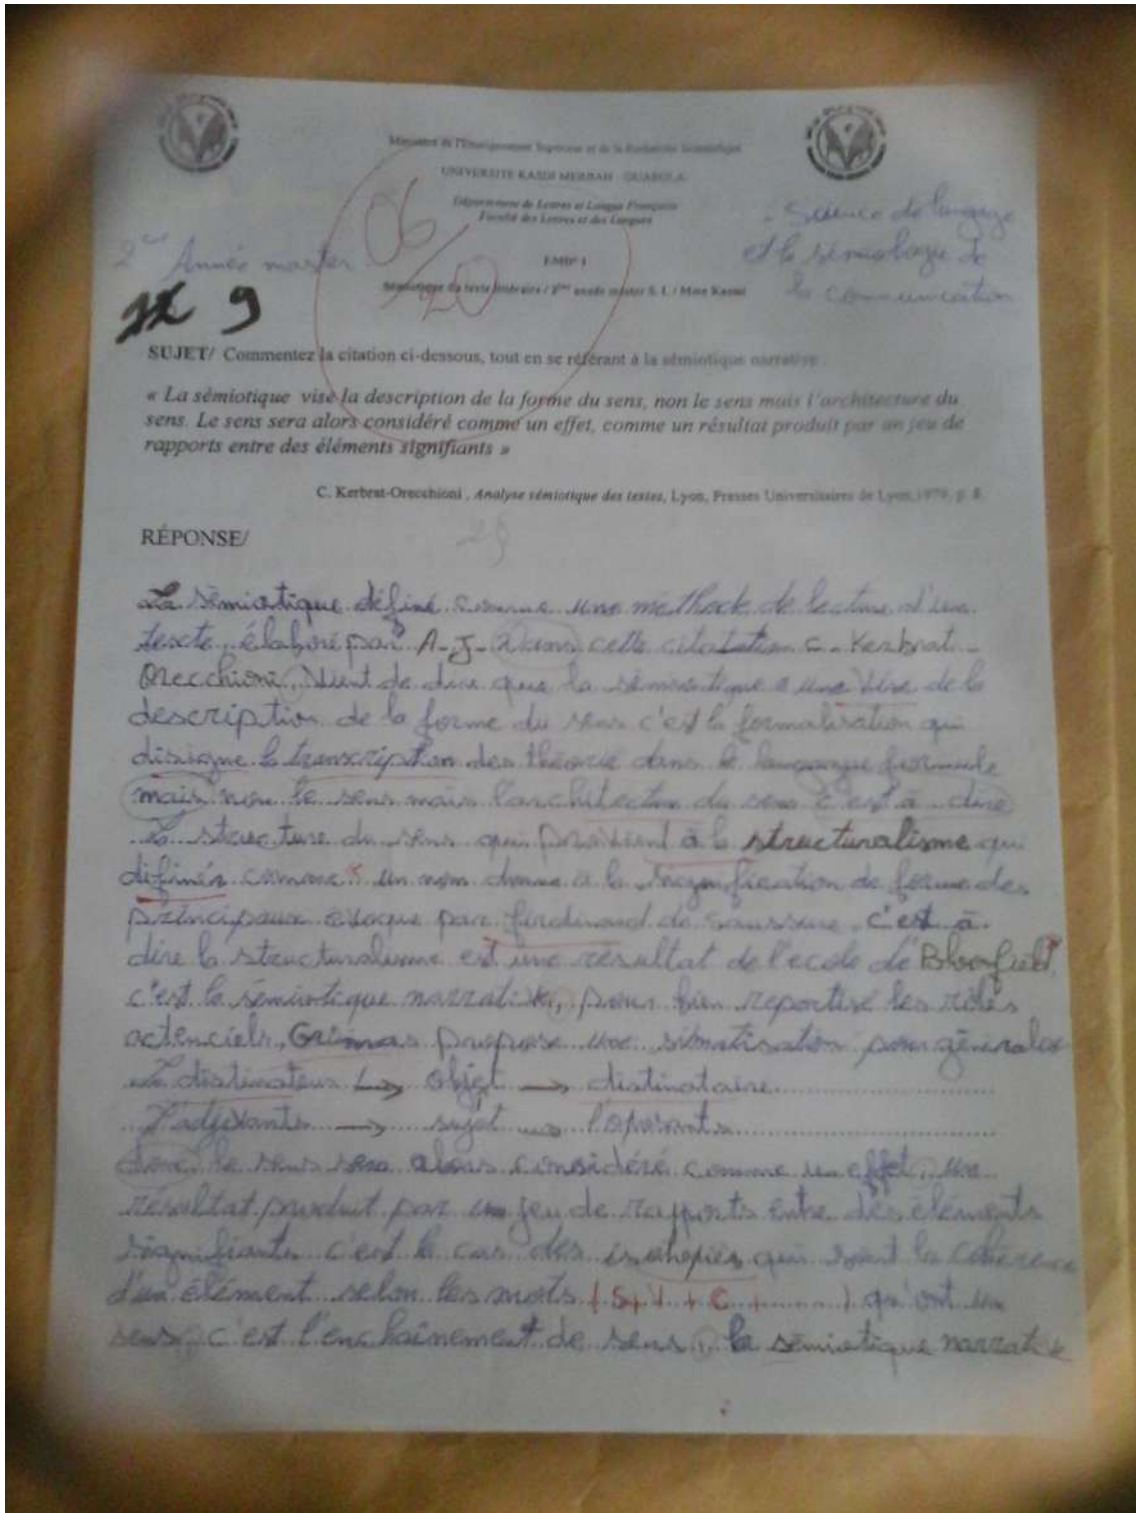 Ministère de l'Enseignement Supérieur et de la Recherche Scientifique
UNIVERSITE KASDI MERBAH - OUARGLA
Département de Lettres et Langue Française
Faculté des Lettres et des Langues
06
20
Science de langage
et la sémiologie de
la communication
2 Année master
EMD 1
Sémiotique du texte littéraire / 2ème année master S. L / Mme Kaouli
9
SUJET/ Commentez la citation ci-dessous, tout en se référant à la sémiotique narrative.
« La sémiotique vise la description de la forme du sens, non le sens mais l'architecture du
sens. Le sens sera alors considéré comme un effet, comme un résultat produit par un jeu de
rapports entre des éléments signifiants »
C. Kerbrat-Orecchioni, Analyse sémiotique des textes, Lyon, Presses Universitaires de Lyon, 1979, p. 8.
RÉPONSE/
La sémiotique défine comme une methode de lecture d'une
texte, élaboré par A-J- Dans cette citatation C- Kerbrat-
Orecchioni, Vient de dire que la sémiotique a une Vise de la
description de la forme du sens c'est la formalisation qui
disigne la transcription des théorie dans le langage formule
mais non le sens mais l'architectur du sens c'est à dire
La structure du sens qui provient à la structuralisme qui
définés comme un nom donne a la signification de forme des
principaux évoque par firdinand de saussure, c'est à
dire la structuralisme est une résultat de l'école de
c'est la sémiotique narrative, pour bien reportise les rôles
actenciels, Greimas propose une simatisation pour générales
Le distinateur → objet → distinataire
L'adjuvants → sujet → l'oposants
donc le sens sera alors considéré comme un effet, une
résultat produit par un jeu de rapports entre des éléments
signifiants c'est le cas des isotopies qui sont la cohérence
d'un élément selon les mots ( S + V + C + ) qu'ont un
sens, c'est l'enchaînement de sens, la sémiotique narrative